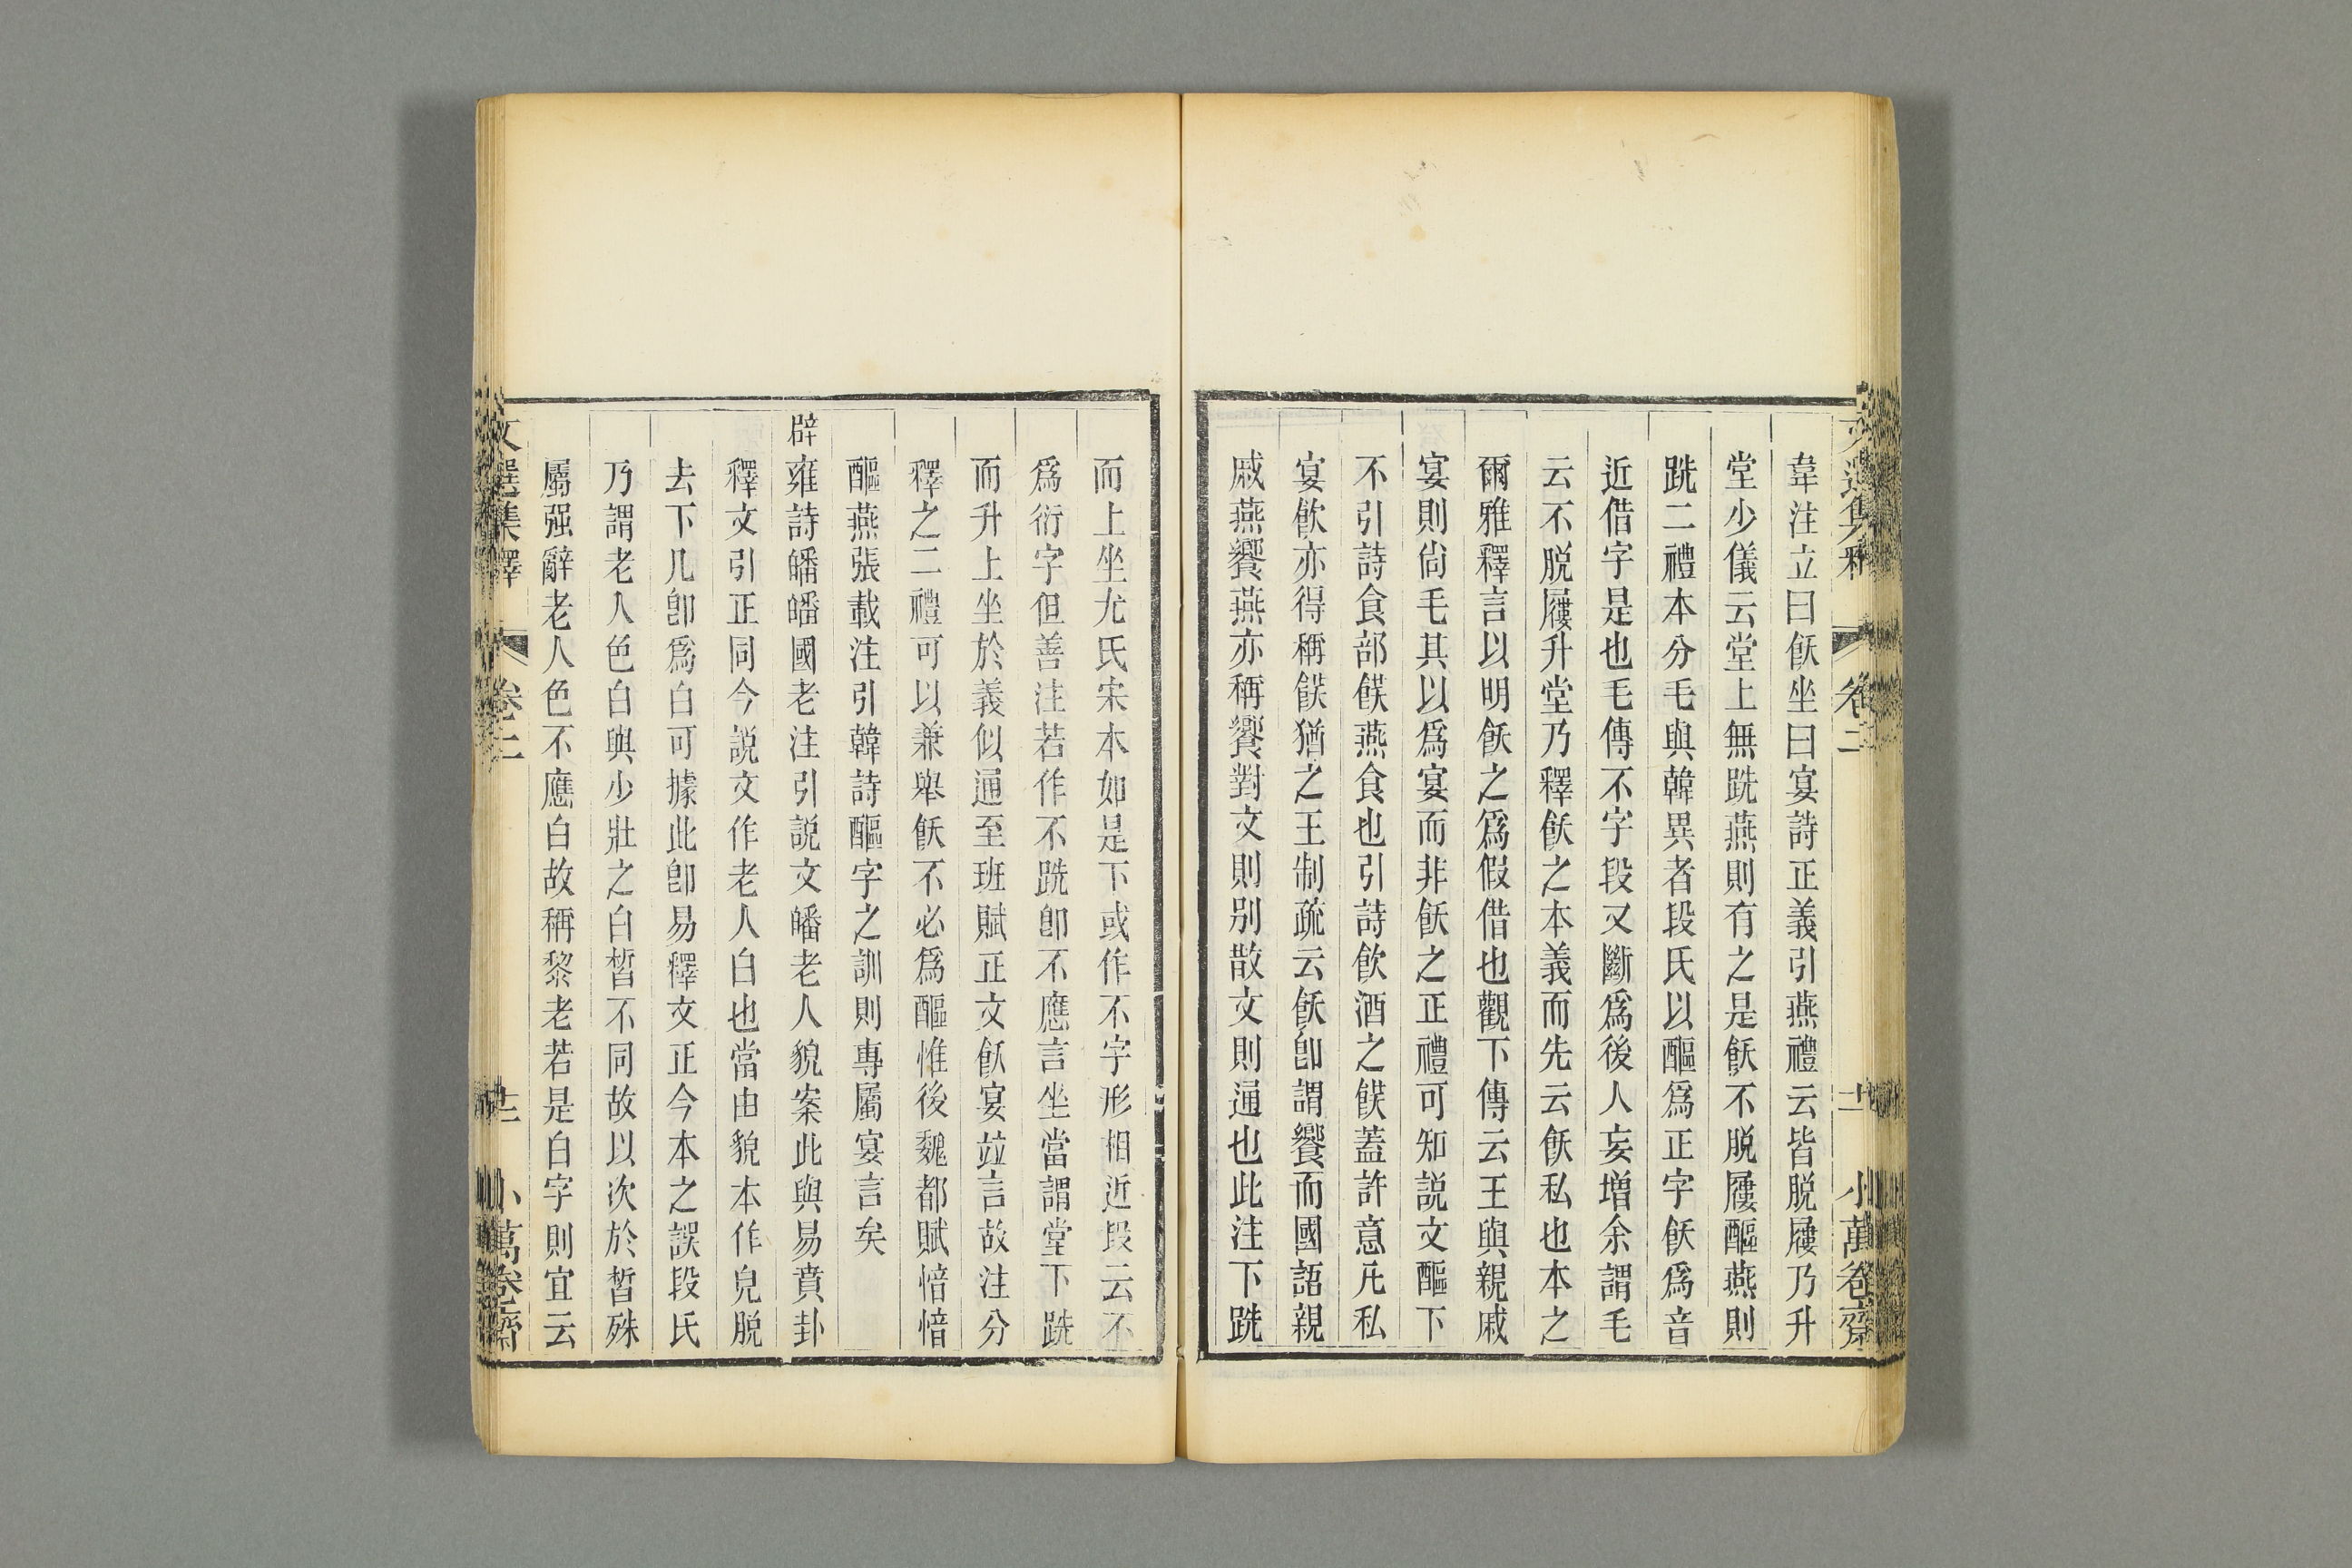 文選集釋 卷二 十一 小萬卷齋
韋注立曰飫坐曰宴詩正義引燕禮云皆脫屨乃升
堂少儀云堂上無跣燕則有之是飫不脫屨醧燕則
跣二禮本分毛與韓異者段氏以醧爲正字飫爲音
近借字是也毛傳不字段又斷爲後人妄增余謂毛
云不脫屨升堂乃釋飫之本義而先云飫私也本之
爾雅釋言以明飫之爲假借也觀下傳云王與親戚
宴則尙毛其以爲宴而非飫之正禮可知說文醧下
不引詩食部䬼燕食也引詩飮酒之䬼蓋許意凡私
宴飮亦得稱䬼猶之王制疏云飫卽謂饗而國語親
戚燕饗燕亦稱饗對文則別散文則通也此注下跣
而上坐尤氏宋本如是下或作不字形相近段云不
爲衍字但善注若作不跣卽不應言坐當謂堂下跣
而升上坐於義似通至班賦正文飫宴竝言故注分
釋之二禮可以兼舉飫不必爲醧惟後魏都賦愔愔
醧燕張載注引韓詩醧字之訓則專屬宴言矣
辟雍詩皤皤國老注引說文皤老人貌案此與易賁卦
釋文引正同今說文作老人白也當由貌本作皃脫
去下几卽爲白可據此卽易釋文正今本之誤段氏
乃謂老人色白與少壯之白皙不同故以次於皙殊
屬强辭老人色不應白故稱黎老若是白字則宜云
文選集釋 卷二 十二 小萬卷齋